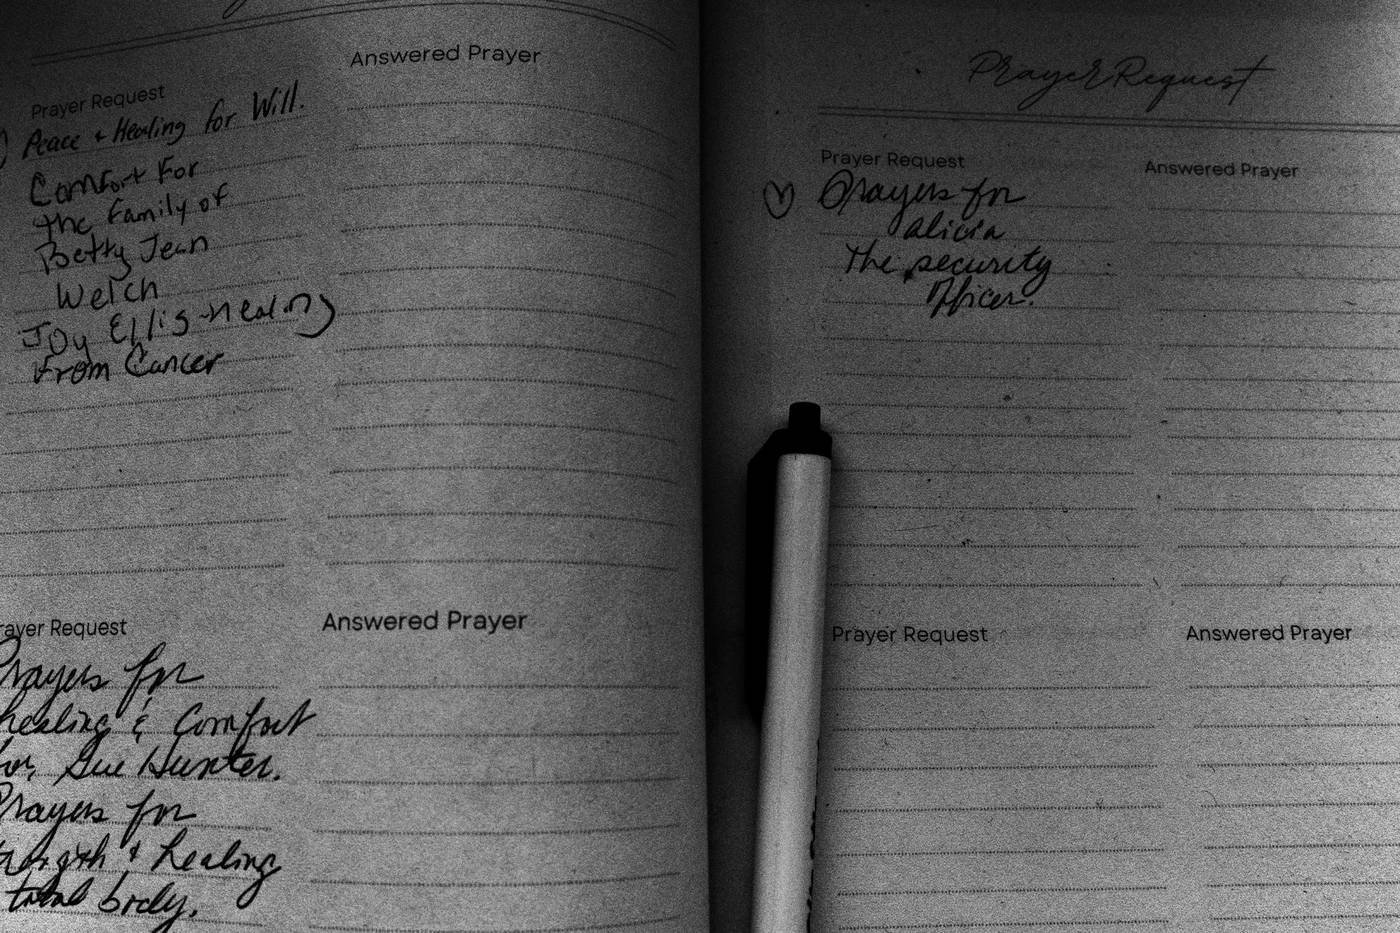 Prayer Request
Answered Prayer
Peace + Healing for Will.
Comfort For
the Family of
Betty Jean
Welch
Joy Ellis-healing
From Cancer
rayer Request
Answered Prayer
Prayers for
healing & Comfort
for, Sue Hunter.
Prayers for
trength & healing
total body.
Prayer Request
Prayer Request
Answered Prayer
Prayers for
alicia
The security
Officer.
Prayer Request
Answered Prayer